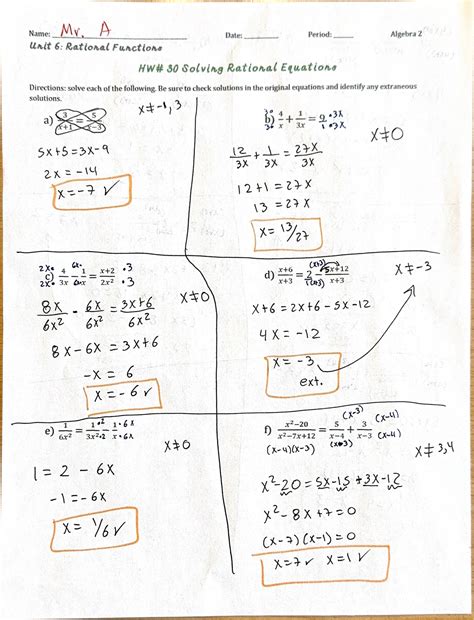 Name: Mr. A Date: Period: Algebra 2
Unit 6: Rational Functions
HW# 30 Solving Rational Equations
Directions: solve each of the following. Be sure to check solutions in the original equations and identify any extraneous
solutions.
a) 3/x+1 = 5/x-3 x≠-1, 3
5x+5=3x-9
2x = -14
x=-7 ✓
b) 3•/3• 4/x + 1/3x = 9•3x/1•3x x≠0
12/3x + 1/3x = 27x/3x
12+1 = 27x
13 = 27x
x= 13/27
c) 2x•/2x• 4/3x - 6x•/6x• 1/x = x+2/2x² •3/•3 x≠0
8x/6x² - 6x/6x² = 3x+6/6x²
8x-6x = 3x+6
-x = 6
x = -6 ✓
d) x+6/x+3 = 2(x+3)/(x+3) - 5x+12/x+3 x≠-3
x+6 = 2x+6-5x-12
4x = -12
x = -3
ext.
e) 1/6x² = 1•2/3x²•2 - 1•6x/x•6x x≠0
1 = 2 - 6x
-1 = -6x
x = 1/6 ✓
f) x²-20/x²-7x+12 = 5(x-3)/x-4(x-3) + 3(x-4)/x-3(x-4) x≠3,4
(x-4)(x-3)
x²-20 = 5x-15+3x-12
x²-8x+7=0
(x-7)(x-1)=0
x=7 ✓ x=1 ✓